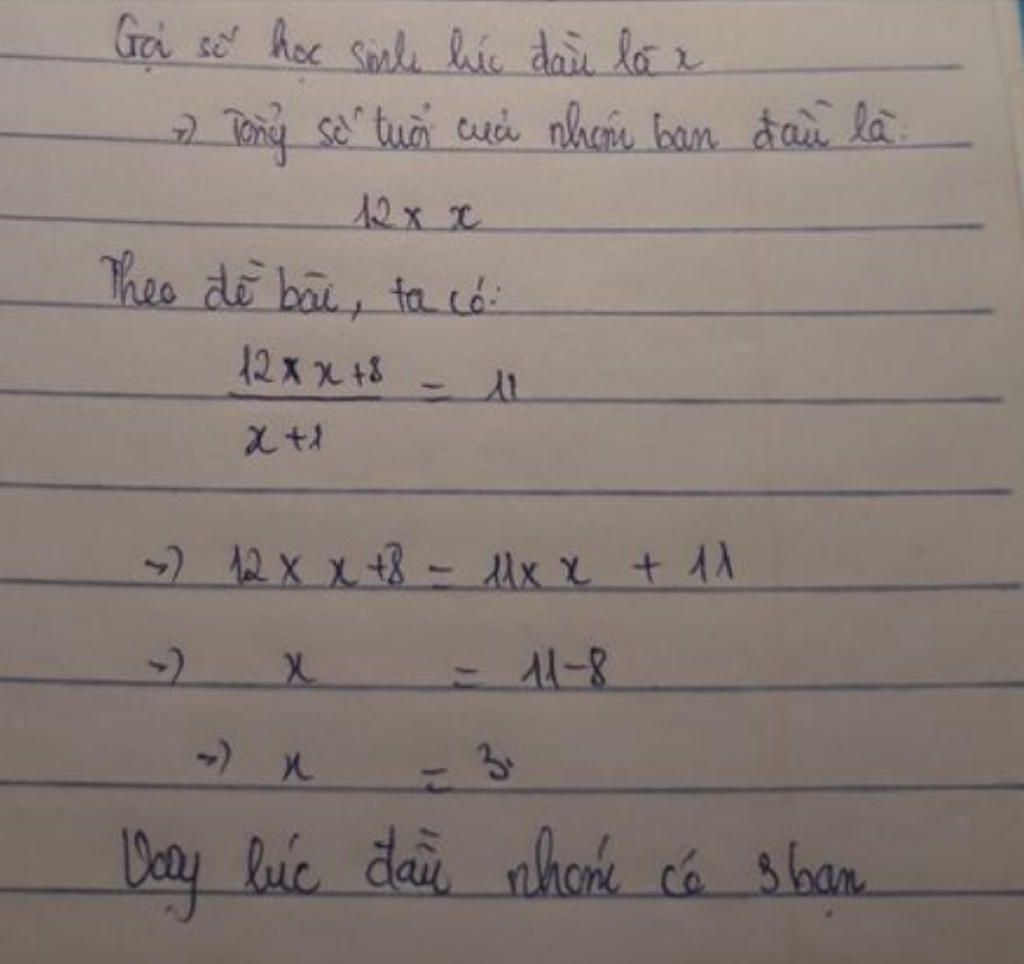 Gọi số học sinh lúc đầu là x
=> Tổng số tuổi của nhóm ban đầu là:
12 × x
Theo đề bài, ta có:
12 × x + 8
= 11
x + 1
=> 12 × x + 8 = 11 × x + 11
=> x = 11 - 8
=> x = 3.
Vậy lúc đầu nhóm có 3 bạn